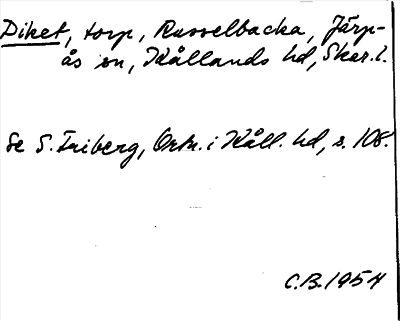 Diket, torp, Russelbacka, Järp-
ås sn, Kållands hd, Skar. l.
Se S. Friberg, Ortn. i Kåll. hd, s. 108.
C.B. 1954